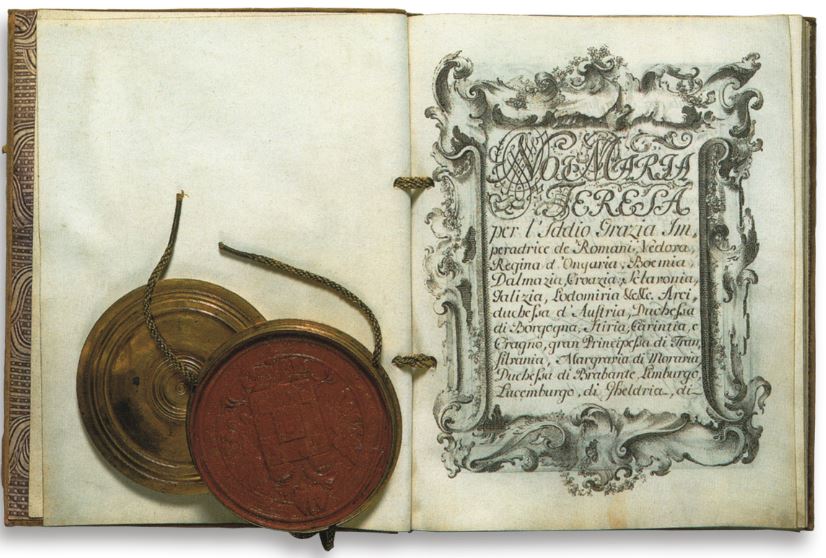 Noi Maria
Teresa
per l'Iddio Grazia Im,
peradrice de Romani, Vedova,
Regina d'Ongaria, Boemia,
Dalmazia, Croazia, Sclavonia,
Galizia, Lodomiria &c&c. Arci,
duchessa d'Austria, Duchessa
di Borgogna, Stiria, Carintia, e
Cragno, gran Principessa di Tran
silvania, Margravia di Moravia
Duchessa di Brabante, Limburgo
Lucemburgo, di Gheldria, di-